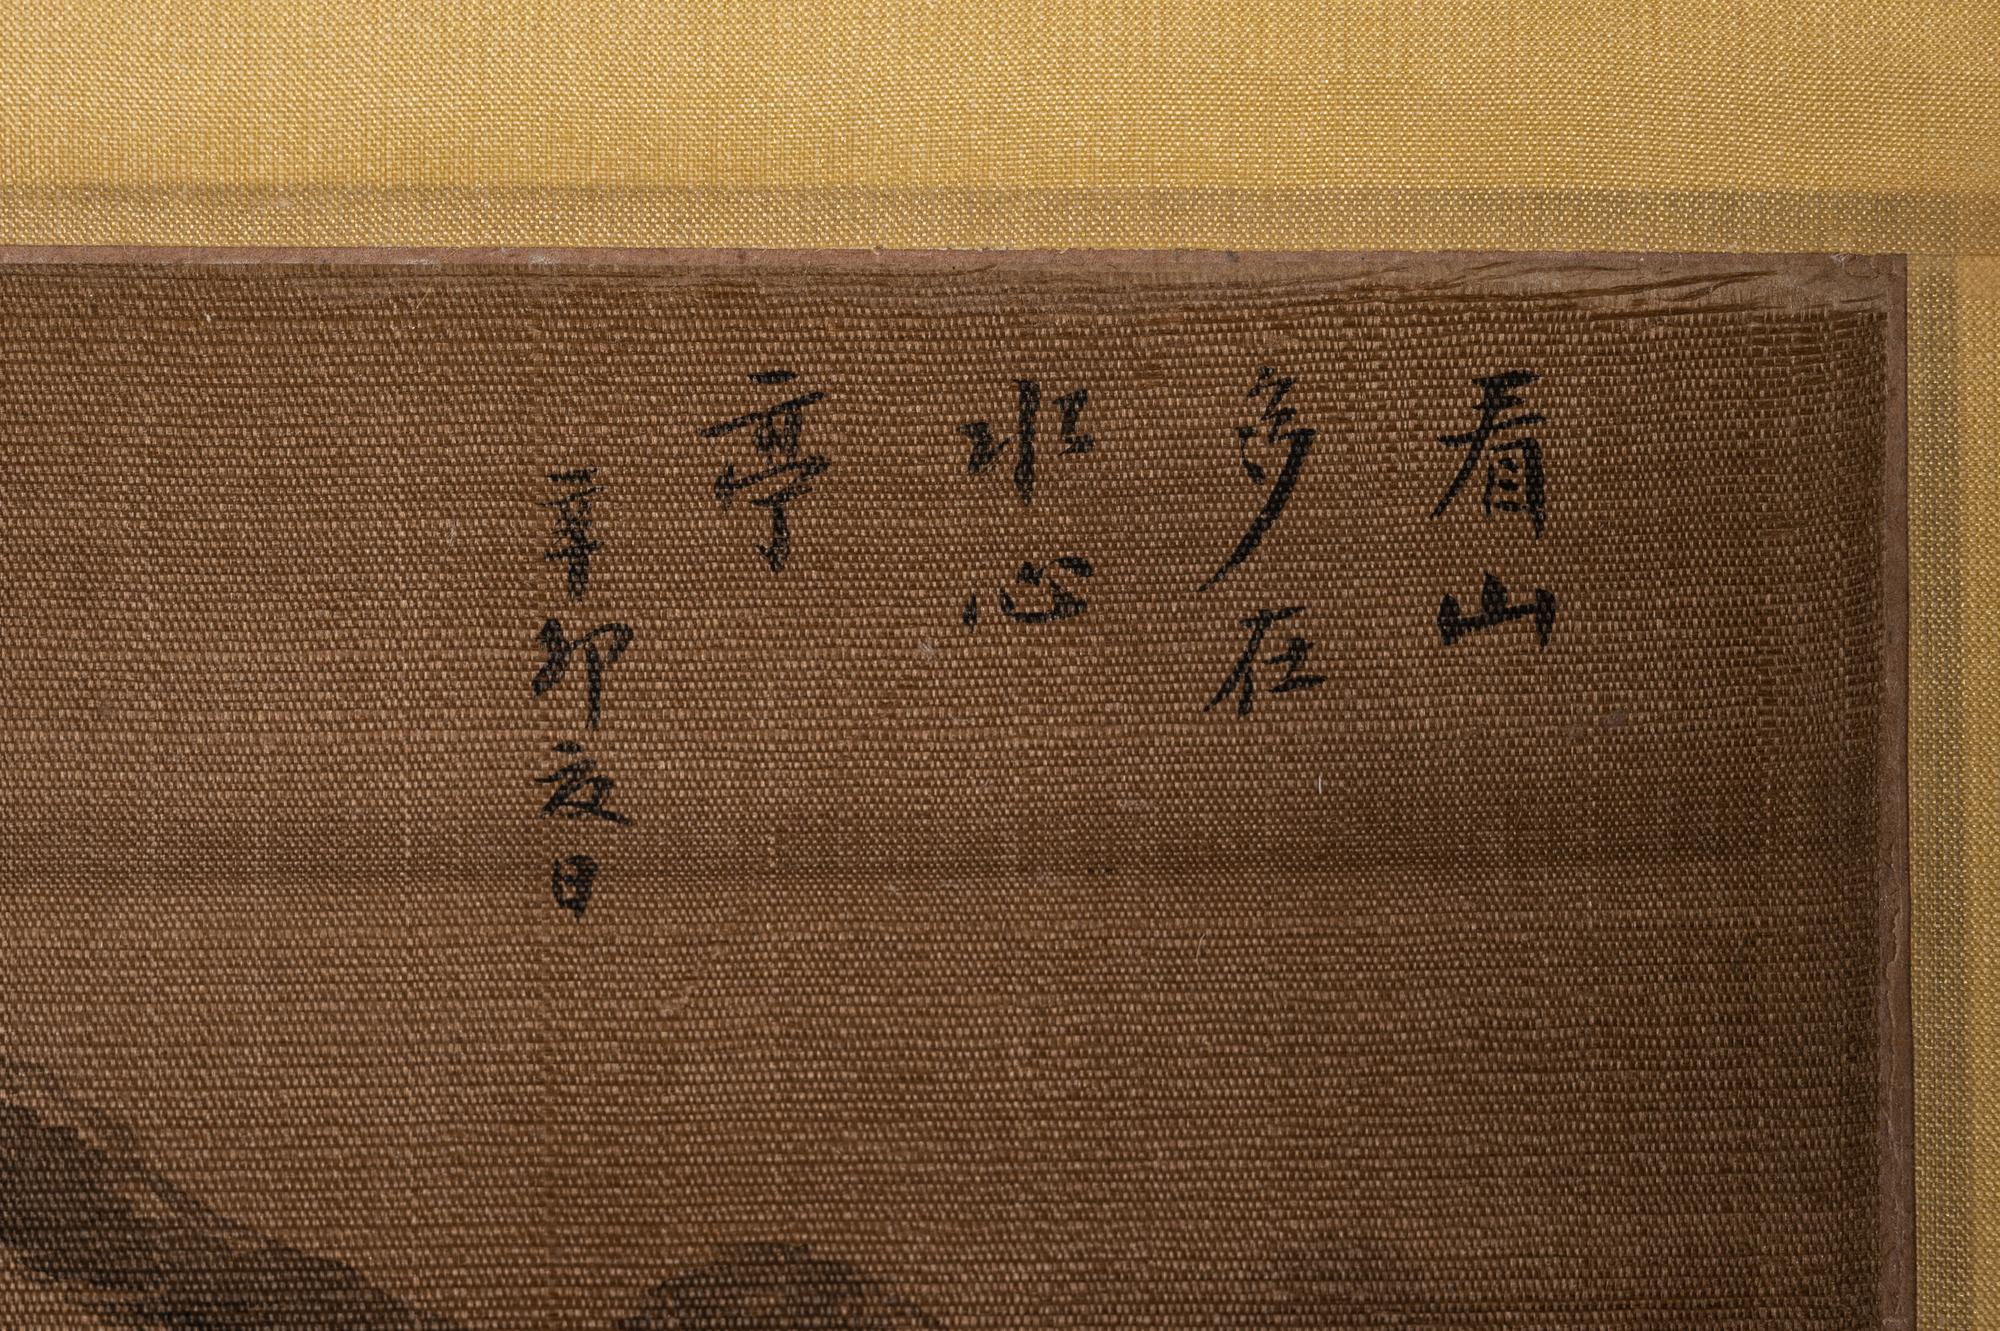 看山
多在
水心
亭
辛卯夜日